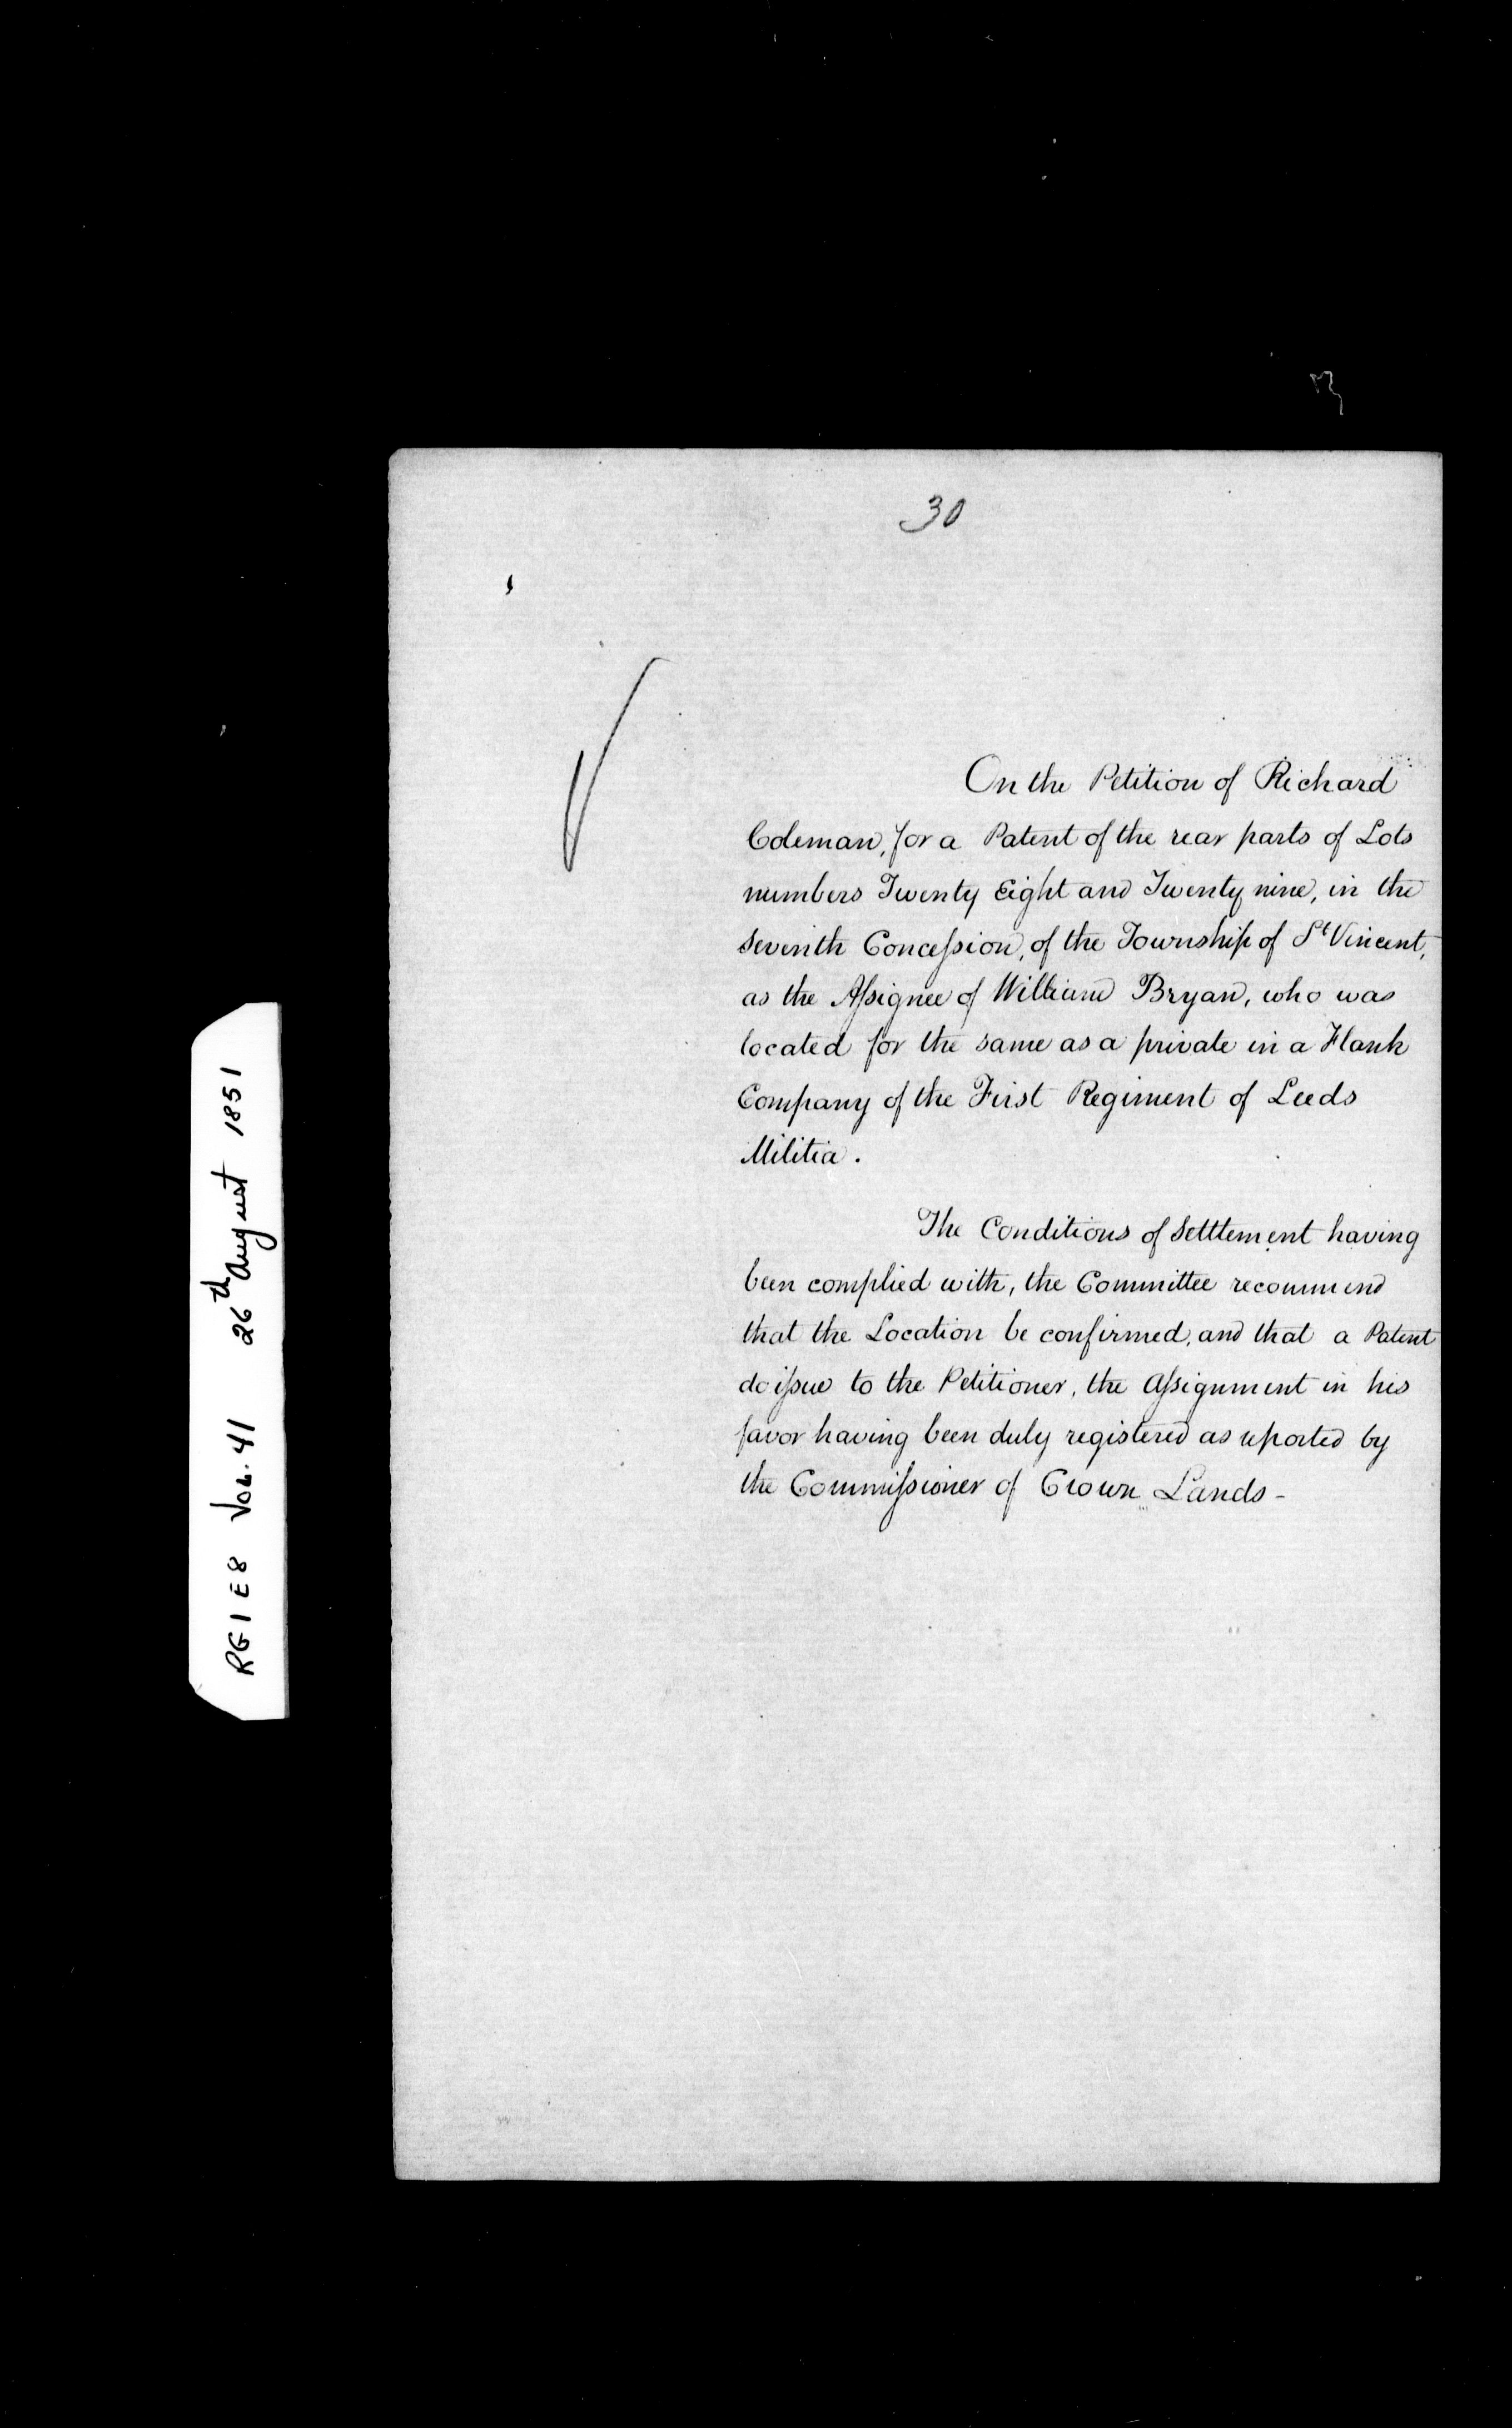 30
On the Petition of Richard
Coleman, for a Patent of the rear parts of Lots
numbers Twenty Eight and Twenty nine, in the
Seventh Conceſsion, of the Township of St Vincent,
as the Aſsignee of William Bryan, who was
located for the same as a private in a Flank
Company of the First Regiment of Leeds
Militia.
The Conditions of Settlement having
been complied with, the Committee recommend
that the Location be confirmed, and that a Patent
do iſsue to the Petitioner, the Aſsignment in his
favor having been duly registered as reported by
the Commiſsioner of Crown Lands -
RG 1 E8 VOL. 41 26th August 1851